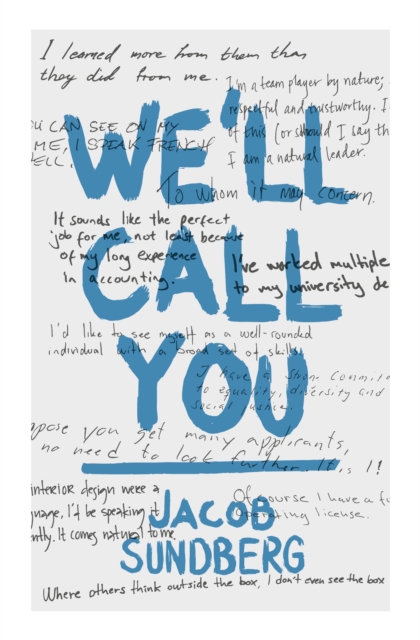 I learned more from them than
they did from me.
I'm a team player by nature;
respectful and trustworthy. I
of this (or should I say th
I am a natural leader.
U CAN SEE ON MY
ME, I SPEAK FRENCH
ELL!
WE'LL
To whom it may concern.
It sounds like the perfect
job for me, not least because
of my long experience
in accounting.
I've worked multiple
to my university de
CALL
I'd like to see myself as a well-rounded
individual with a broad set of skills.
YOU
I have a strong commit
to equality, diversity and
social justice.
pose you get many applicants,
no need to look further. It is I!
interior design were a
nguage, I'd be speaking it
ntly. It comes natural to me.
Of course I have a fo
operating license.
JACOB
SUNDBERG
Where others think outside the box, I don't even see the box